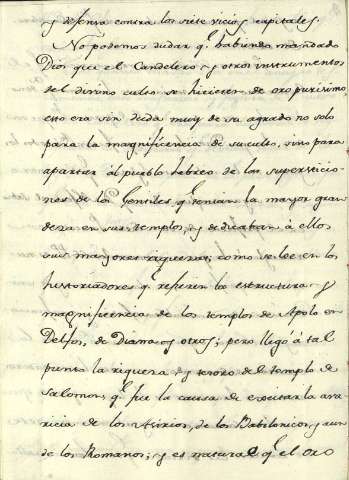 y defensa contra los siete vicios capitales.
No podemos dudar q.e habiendo mandado
Dios que el Candelero y otros instrumentos
del divino culto se hiciesen de oro purisimo
esto era sin duda muy de su agrado no solo
para la magnificencia de su culto, sino para
apartar ál pueblo hebreo de las supersticio-
nes de los Gentiles q.e tenian la mayor gran
deza en sus templos, y dedicaban á ellos
sus mayores riquezas, como se lee en los
historiadores q.e refieren la estructura y
magnificencia de los templos de Apolo en
Delfos, de Diana y otros; pero llegó á tal
punto la riqueza y tesoro del templo de
Salomon q.e fue la causa de execitar la ava-
ricia de los Asirios, de los Babilonios, y aun
de los Romanos; y es natural q.e el oro